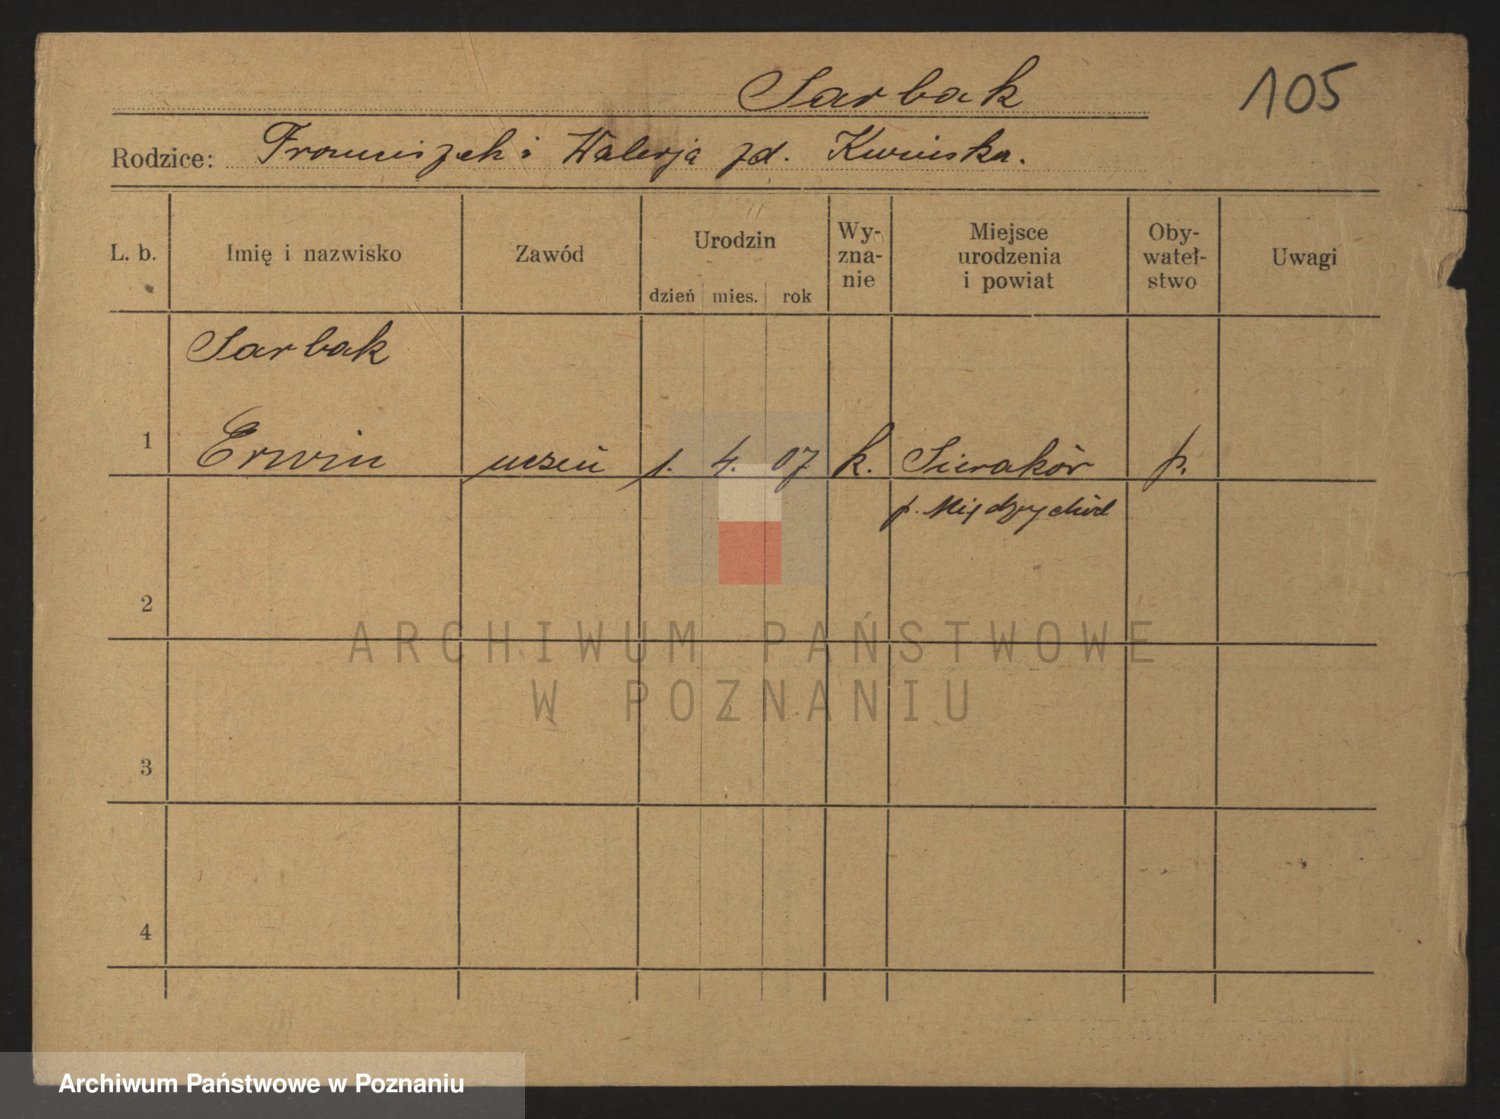 Sarbak 105
Rodzice: Franciszek i Walerja zd. Kwińska.
L. b. Imię i nazwisko Zawód Urodzin Wy- Miejsce Oby- Uwagi
zna- urodzenia watel-
nie i powiat stwo
dzień mies. rok
Sarbak
1 Erwin uczeń 1. 4. 07 k. Sieraków p.
p. Międzychód
2
ARCHIWUM PAŃSTWOWE
W POZNANIU
3
4
Archiwum Państwowe w Poznaniu